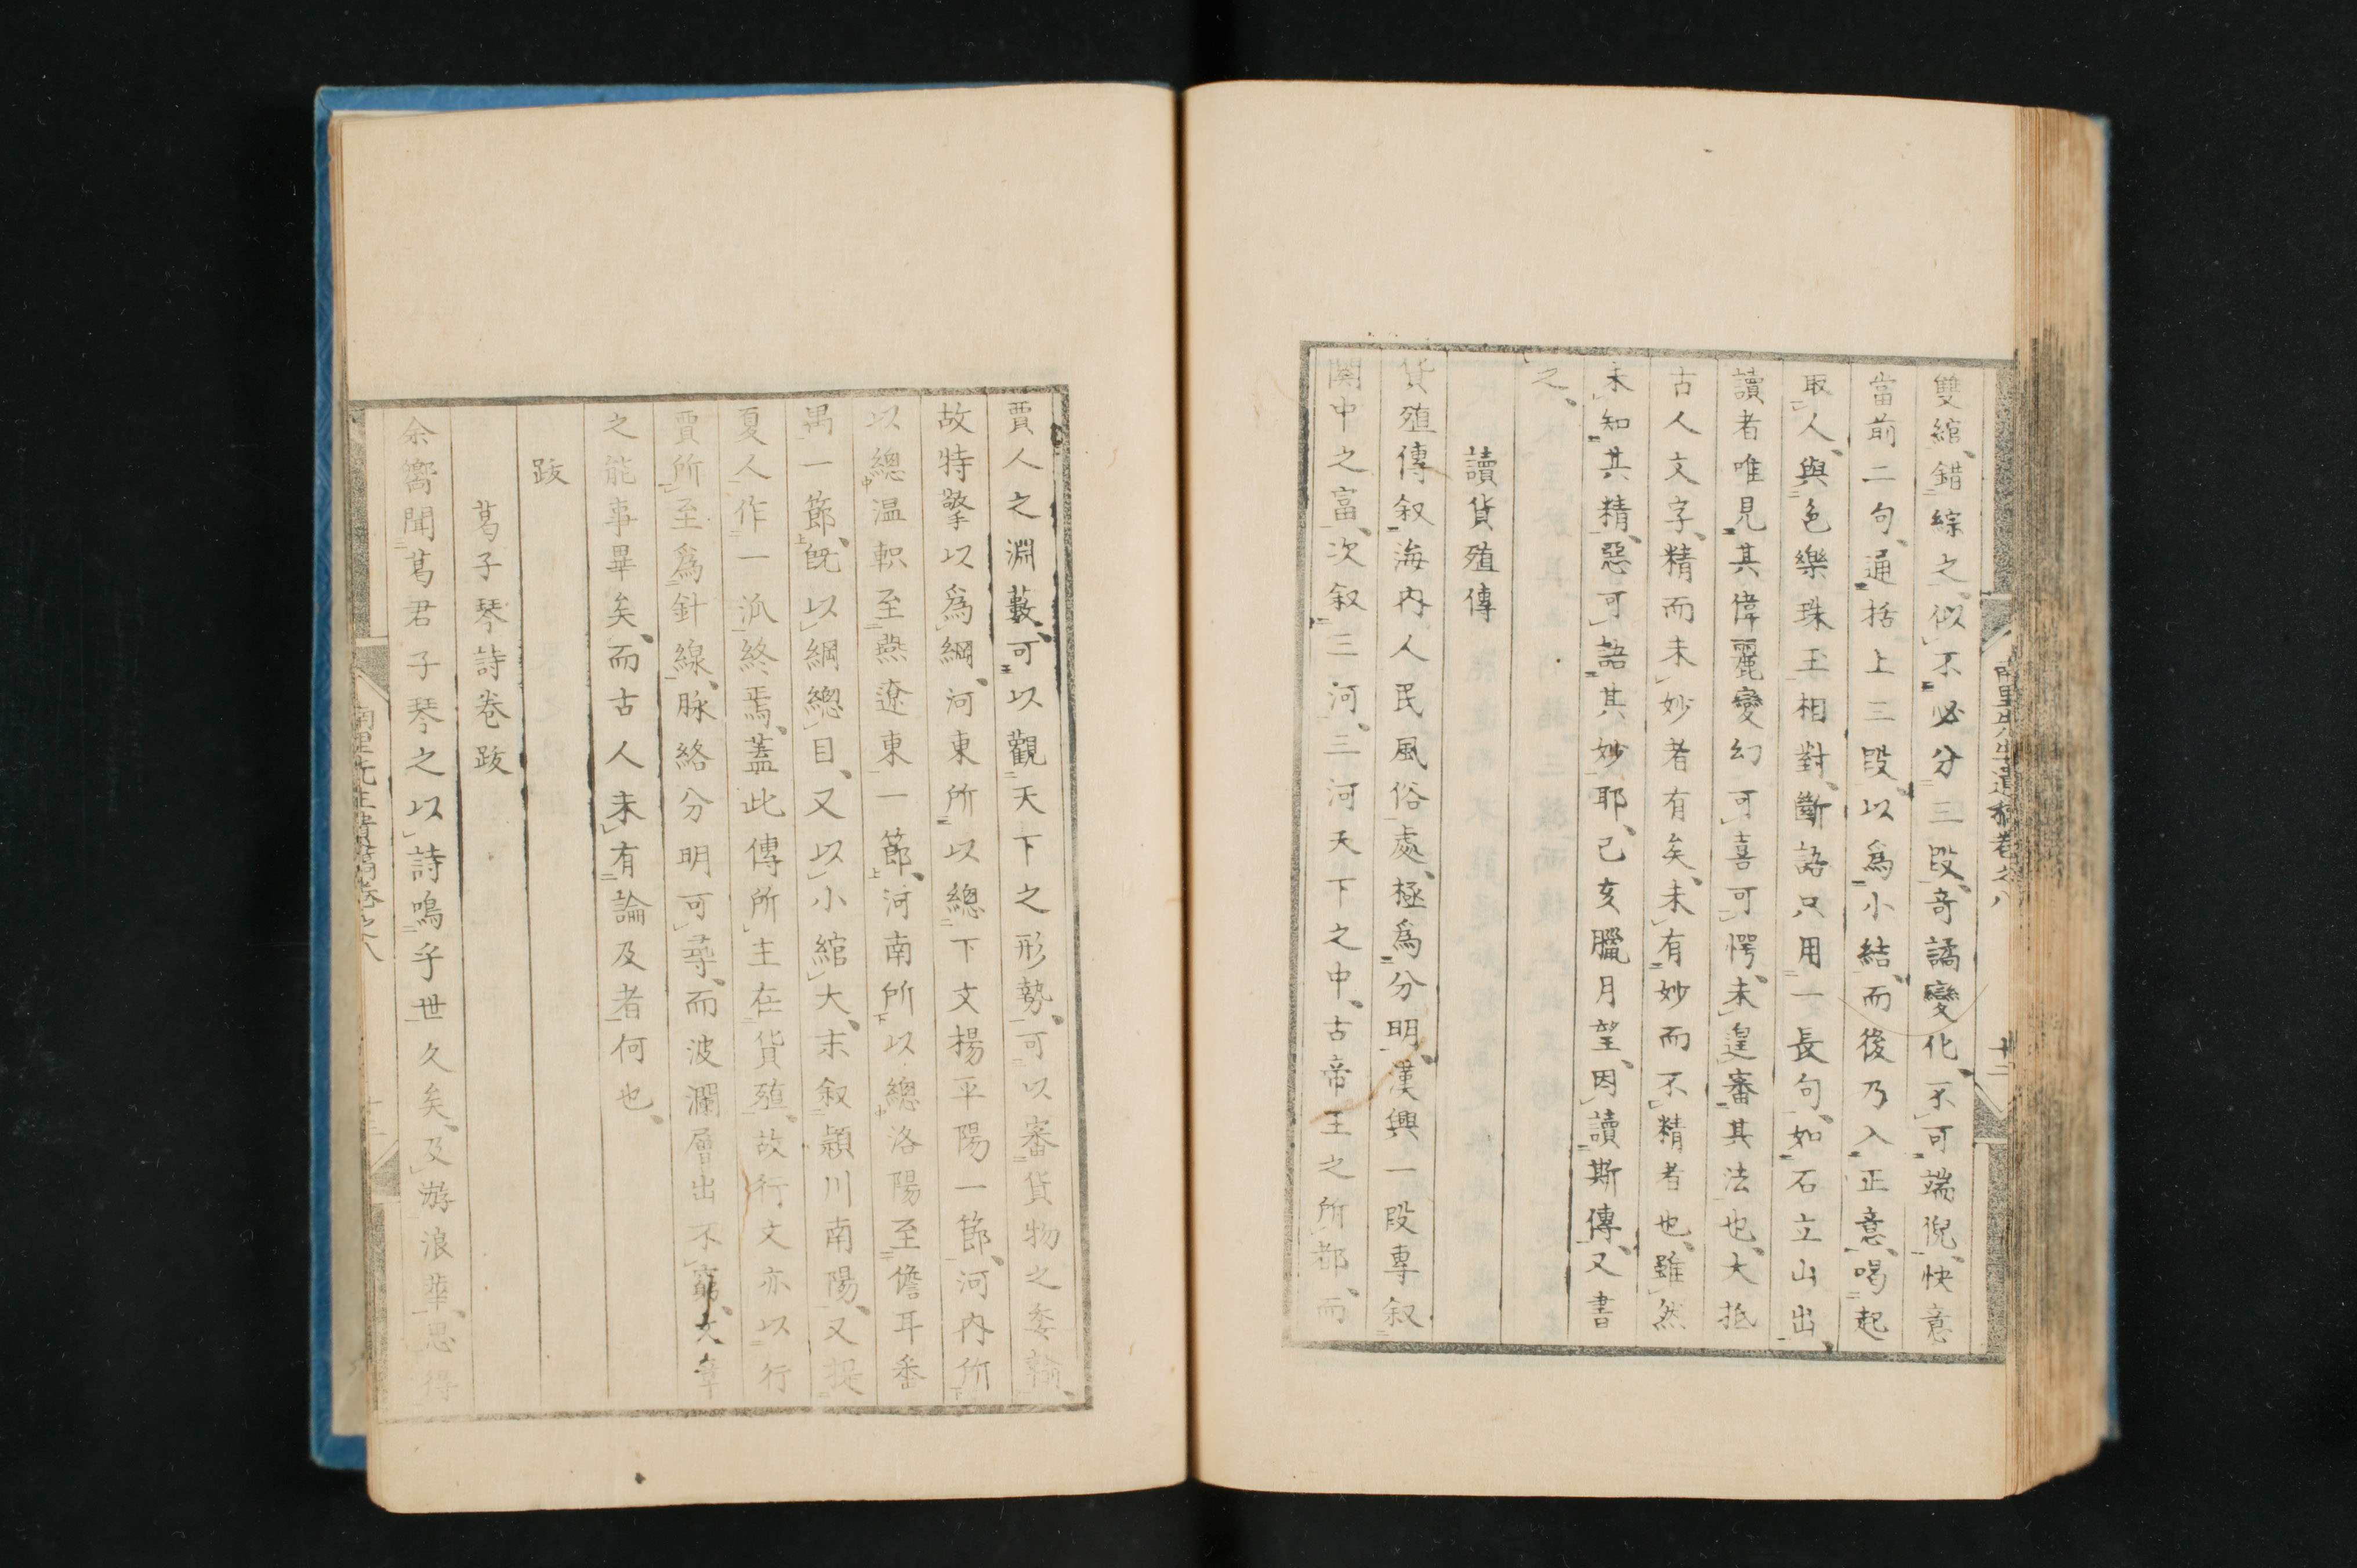 雙綰、錯綜之、似不必分三段、奇譎變化、不可端倪、快意
當前二句、通括上三段、以爲小結、而後乃入正意、喝起
取人、與色樂珠玉相對、斷語只用一長句、如石立山出、
讀者唯見其偉麗變幻可喜可愕、未遑審其法也、大抵
古人文字、精而未妙者有矣、未有妙而不精者也、雖然
未知其精、惡可語其妙耶、己亥臘月望、因讀斯傳、又書
之、
讀貨殖傳
貨殖傳叙海内人民風俗處、極爲分明、漢興一段專叙
關中之富、次叙三河、三河天下之中、古帝王之所都、而
南里先生遺稿卷之八
十二
賈人之淵藪、可以觀天下之形勢、可以審貨物之委輸、
故特擎以爲綱、河東所以總下文楊平陽一節、河内所
以總温軹至燕遼東一節、河南所以總洛陽至儋耳番
禺一節、既以綱總目、又以小綰大、末叙潁川南陽、又提
夏人作一派終焉、蓋此傳所主在貨殖、故行文亦以行
賈所至爲針線、脉絡分明可尋、而波瀾層出不窮、文章
之能事畢矣、而古人未有論及者何也、
跋
葛子琴詩卷跋
余嚮聞葛君子琴之以詩鳴乎世久矣、及游浪華、思得
南里先生遺稿卷之八
十三